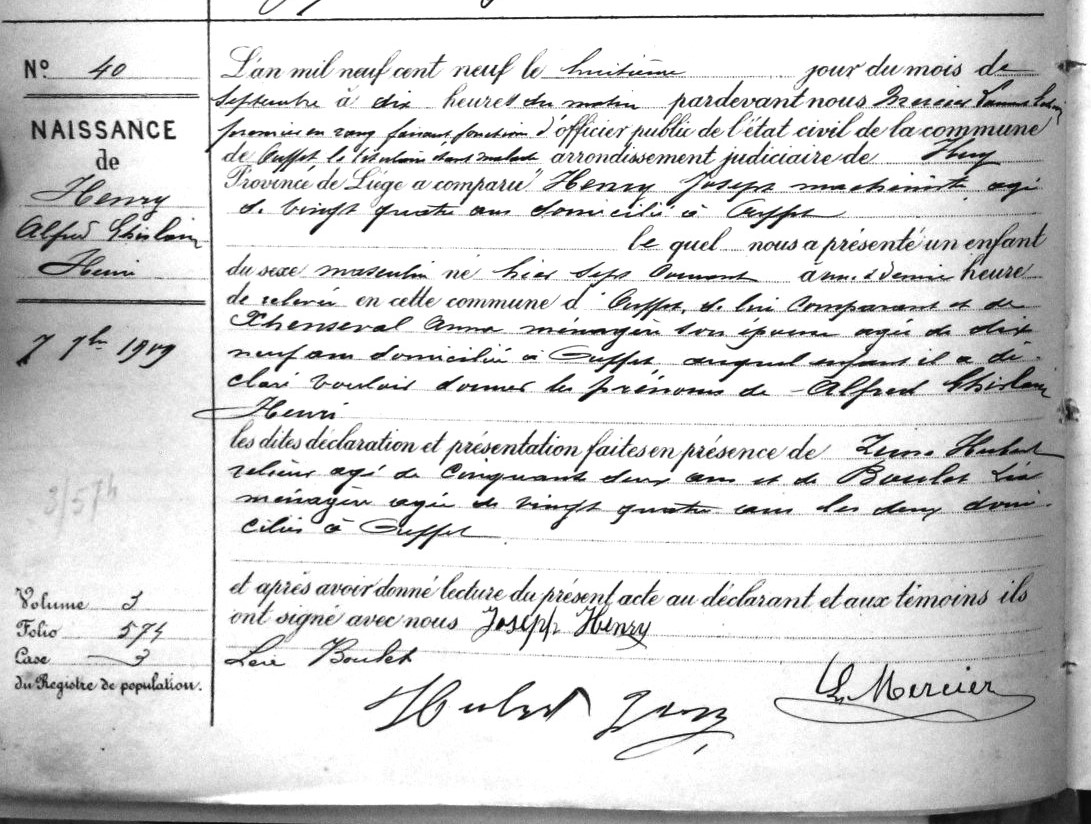 N° 40
NAISSANCE
de
Henry
Alfred Ghislain
Henri
7 7bre 1909
3/574
Volume 3
Folio 574
Case 3
du Registre de population.
L'an mil neuf cent neuf le huitième jour du mois de
septembre à dix heures du matin pardevant nous Mercier
premier en rang faisant fonction d'officier public de l'état civil de la commune
de Ouffet le titulaire étant malade arrondissement judiciaire de Huy
Province de Liége a comparu Henry Joseph machiniste agé
de vingt quatre ans domicilié à Ouffet
le quel nous a présenté un enfant
du sexe masculin né hier sept courant à une & demie heure
de relevée en cette commune d'Ouffet, de lui comparant et de
Thenseval Anna ménagère son épouse agée de dix
neuf ans domiciliée à Ouffet auquel enfant il a dé-
claré vouloir donner les prénoms de Alfred Ghislain
Henri
les dites déclaration et présentation faites en présence de Hubert
agé de cinquante deux ans et de Boulet Lie
ménagère agée de vingt quatre ans les deux domi-
ciliés à Ouffet
et après avoir donné lecture du présent acte au déclarant et aux témoins ils
ont signé avec nous Joseph Henry
Boulet
Hubert
L. Mercier